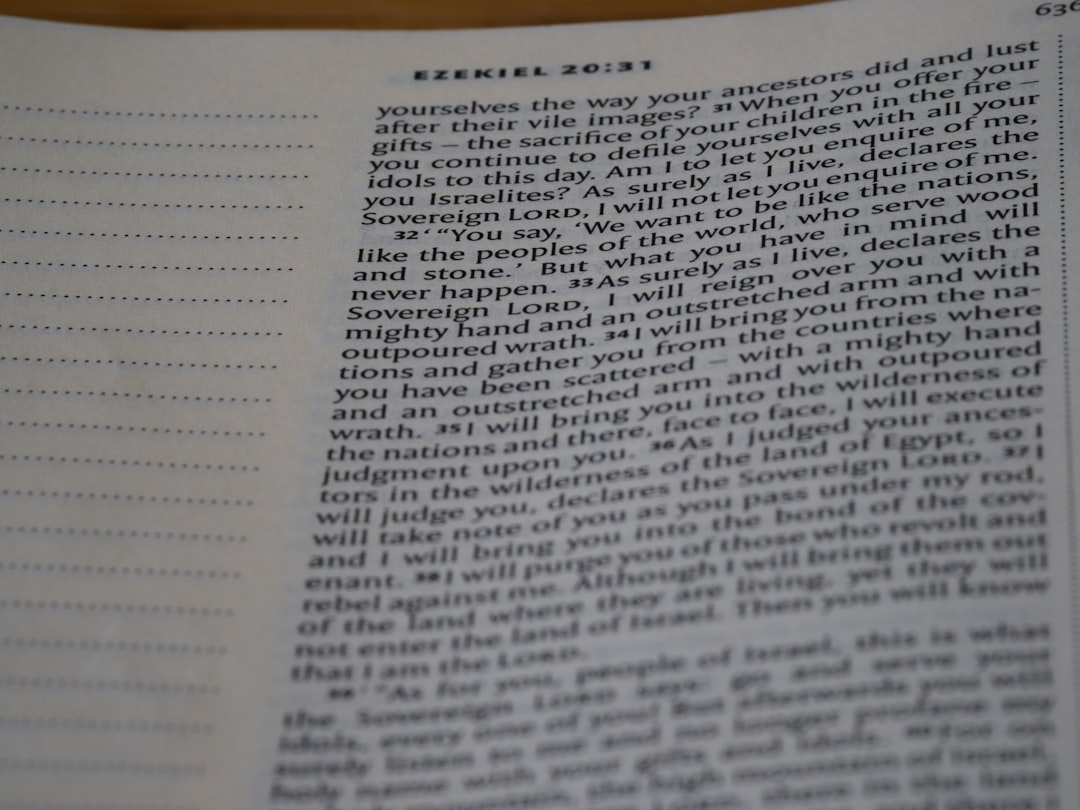 636
EZEKIEL 20:31
yourselves the way your ancestors did and lust
after their vile images? 31 When you offer your
gifts – the sacrifice of your children in the fire –
you continue to defile yourselves with all your
idols to this day. Am I to let you enquire of me,
you Israelites? As surely as I live, declares the
Sovereign LORD, I will not let you enquire of me.
32 ‘ “You say, ‘We want to be like the nations,
like the peoples of the world, who serve wood
and stone.’ But what you have in mind will
never happen. 33 As surely as I live, declares the
Sovereign LORD, I will reign over you with a
mighty hand and an outstretched arm and with
outpoured wrath. 34 I will bring you from the na-
tions and gather you from the countries where
you have been scattered – with a mighty hand
and an outstretched arm and with outpoured
wrath. 35 I will bring you into the wilderness of
the nations and there, face to face, I will execute
judgment upon you. 36 As I judged your ances-
tors in the wilderness of the land of Egypt, so I
will judge you, declares the Sovereign LORD. 37 I
will take note of you as you pass under my rod,
and I will bring you into the bond of the cov-
enant. 38 I will purge you of those who revolt and
rebel against me. Although I will bring them out
of the land where they are living, yet they will
not enter the land of Israel. Then you will know
that I am the LORD.
“As for you, people of Israel, this is what
the Sovereign LORD says: go and serve your
idols, every one of you! But afterwards you will
surely listen to me and no longer profane my
holy name with your gifts and idols.